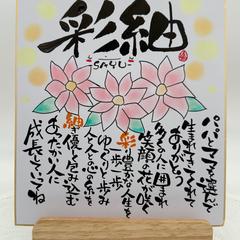 彩紬
-SAYU-
パパとママを選んで
生まれてきてくれて
ありがとう
多くの人に囲まれ
笑顔の花が咲く
彩り豊かな人生を
一歩一歩
ゆっくりと歩み
人と人との心の糸を
紬ぎ優しく包み込む
あたたかい人に
成長していってね